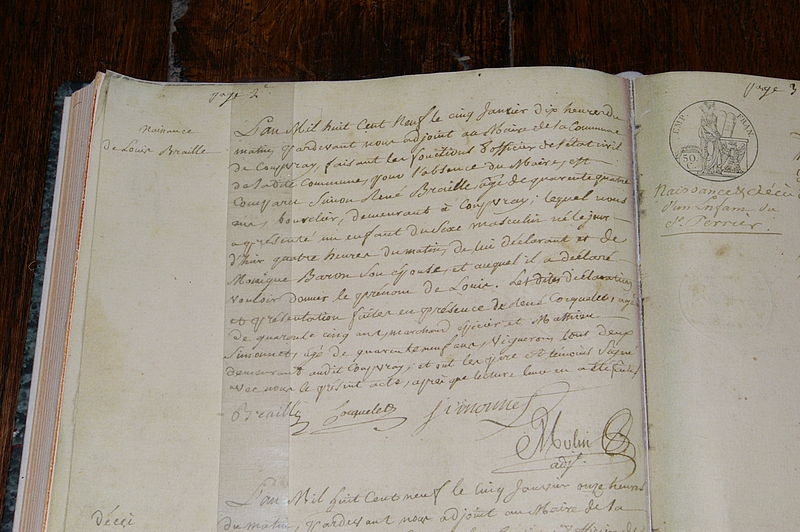 page 2
Naissance
de Louis Braille
L'an Mil huit Cent Neuf le cinq Janvier dix heures du
matin, pardevant nous adjoint au Maire de la Commune
de Coupvray, faisant les fonctions d'officier de l'état civil
de ladite Commune, pour l'absence du Maire, est
Comparu Simon René Braille âgé de quarente quatre
ans, bourelier, demeurant à Coupvray; lequel nous
a présenté un enfant du Sexe masculin né le jour
d'hier quatre heures du matin, de lui déclarant et de
Monique Baron Son épouse, et auquel il a déclaré
vouloir donner le prénom de Louis. Les dites déclaration
et présentation faites en présence de Cocquelet, agé
de quarente cinq ans, marchand et Mathieu
Simonnet, agé de quarente neuf ans, Vigneron, tous deux
demeurant audit Coupvray; et ont les père et témoins Signé
avec nous le présent acte, après que lecture leur en a été faite
Braille Cocquelet Simonnet
Molin
adjt.
Décès
L'an Mil huit Cent neuf le cinq Janvier onze heures
du matin, pardevant nous adjoint au Maire de la
page 3
EMP. FRAN.
50 C.
Naissance & décès
d'un Enfant du
Sr. Perrier.